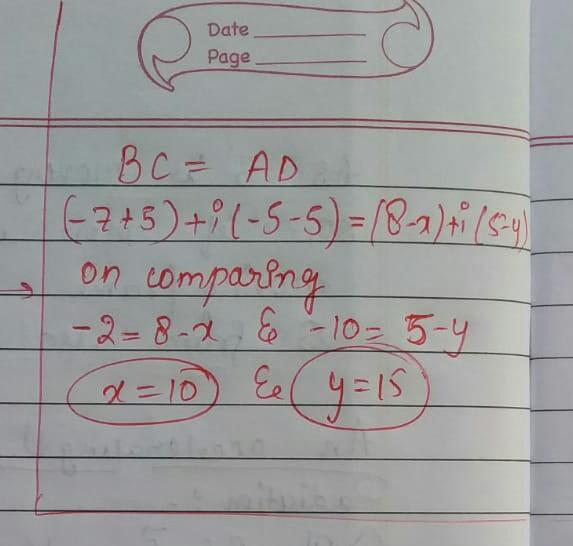 Date
Page
BC = AD
(-7+5)+i(-5-5)=(8-x)+i(5-y)
on comparing
-2=8-x & -10=5-y
x=10 & y=15